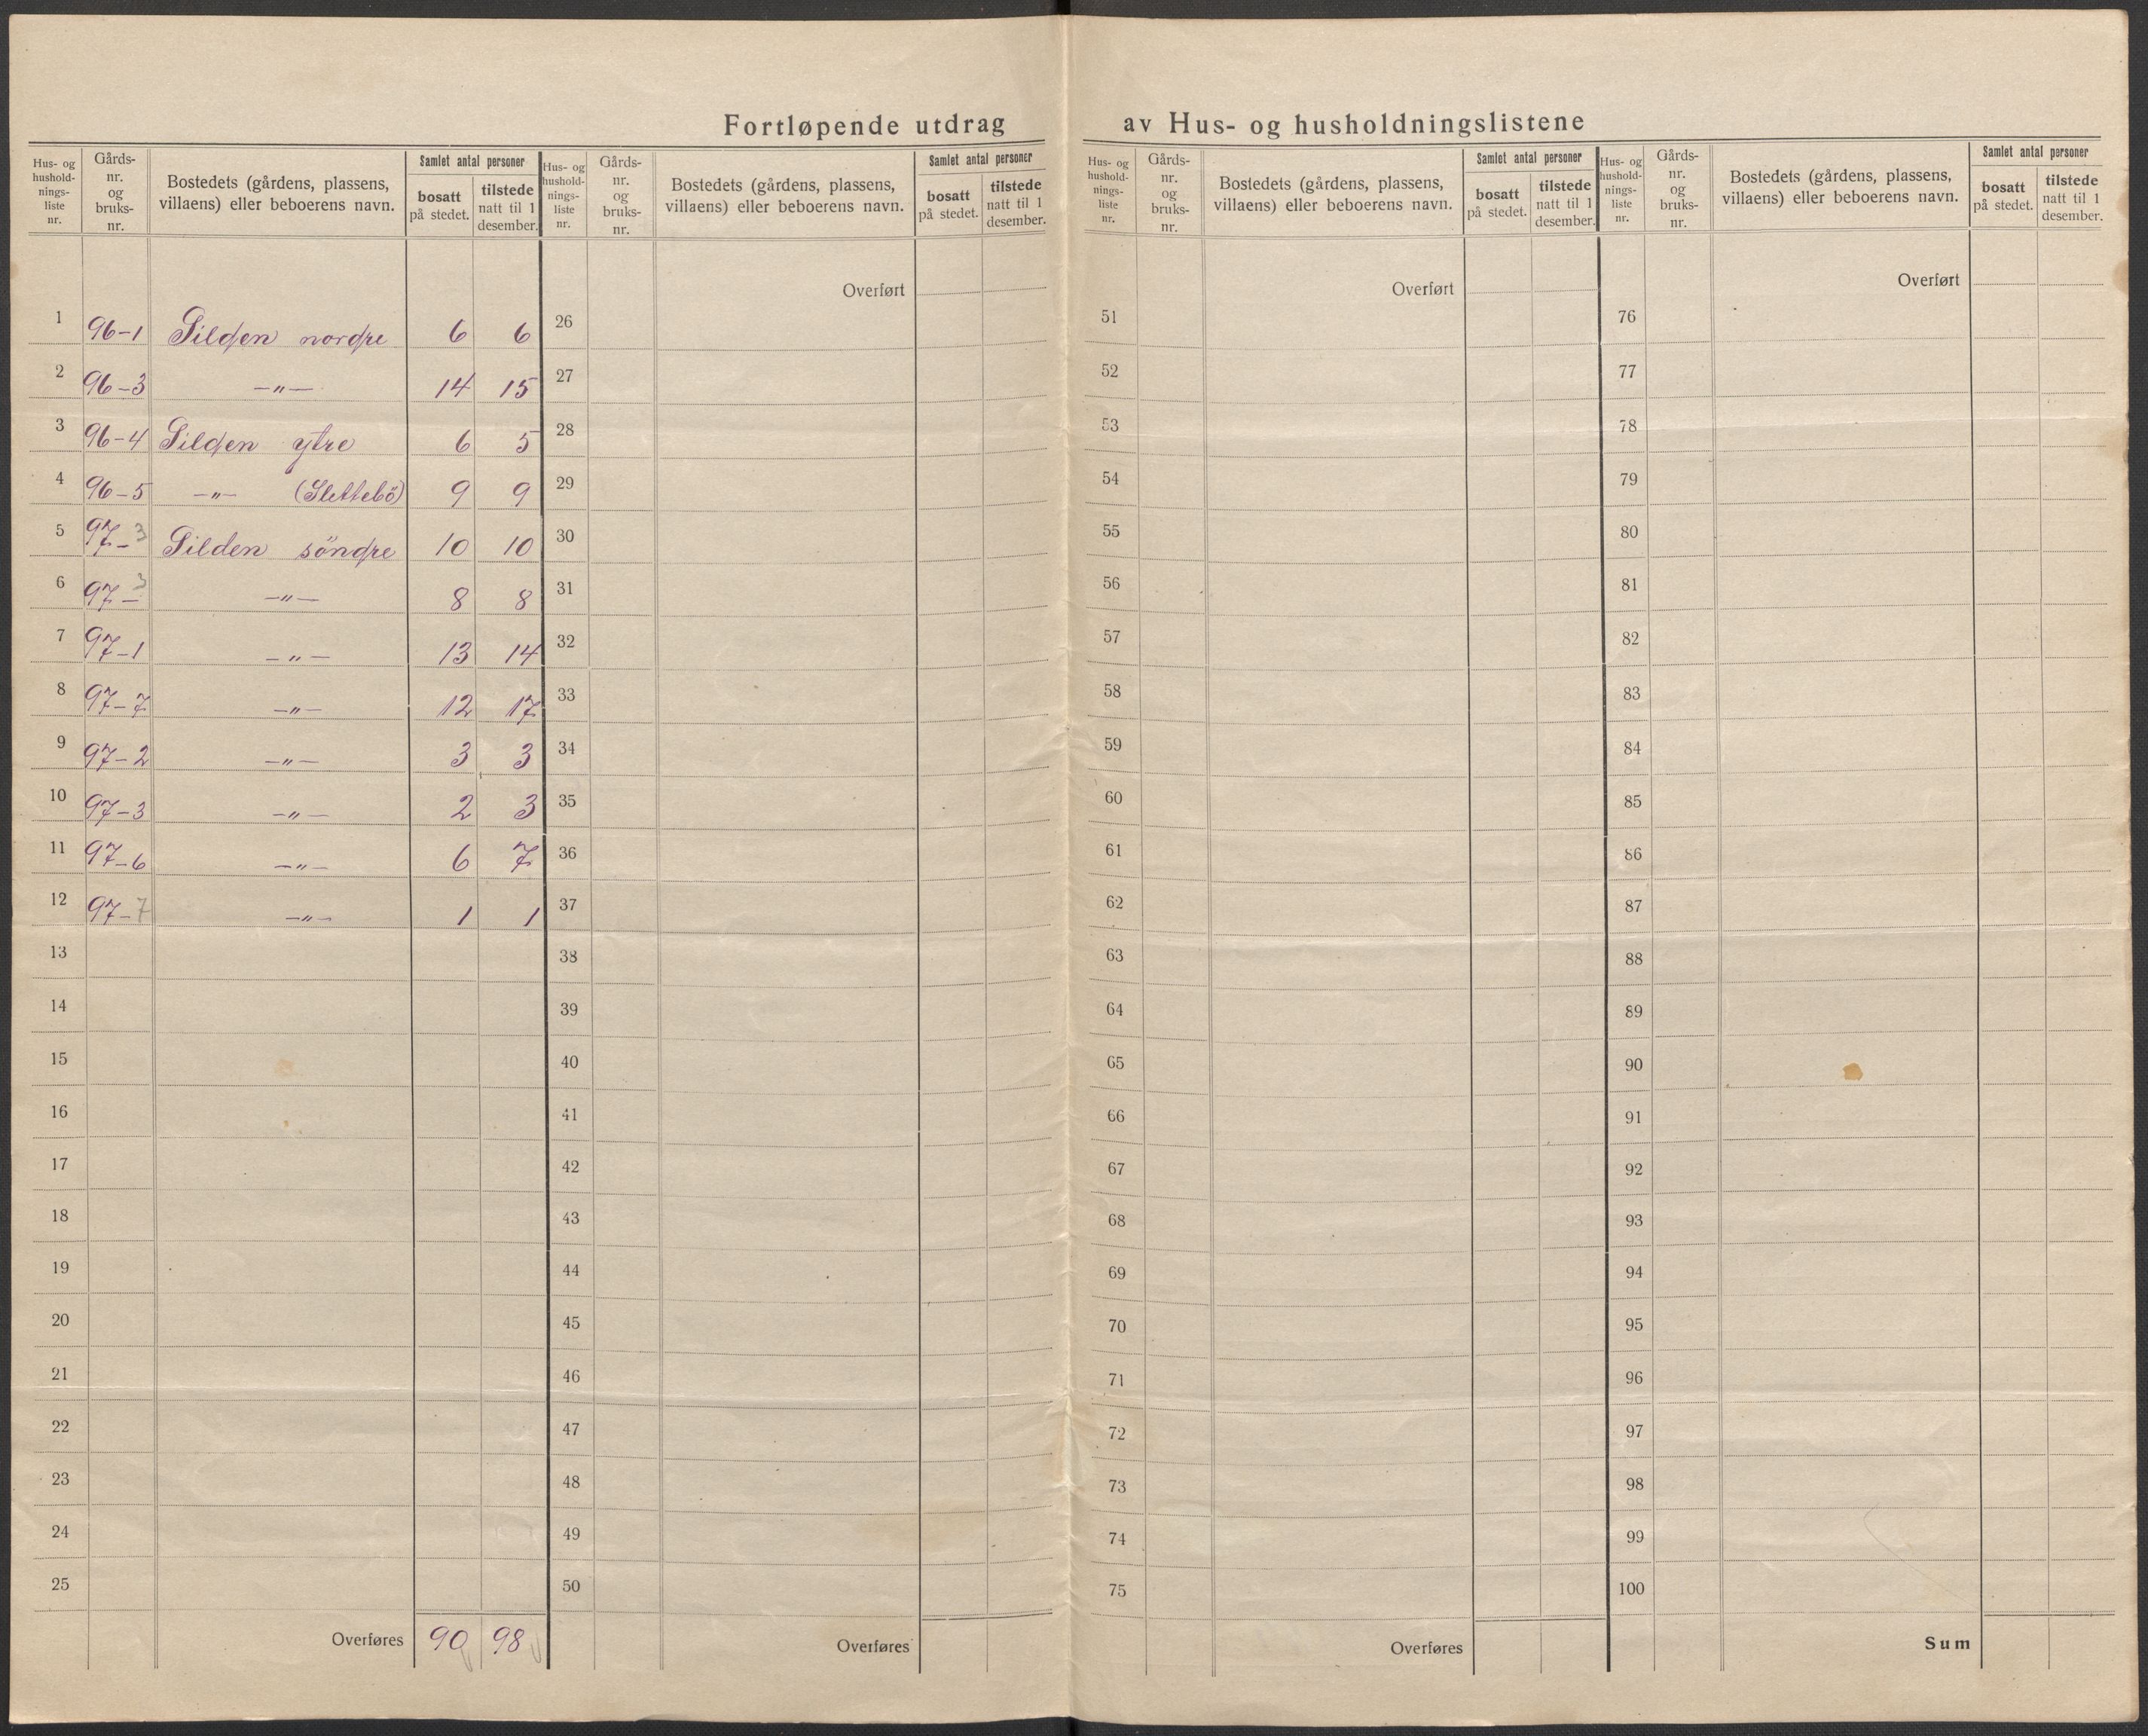 Fortløpende utdrag av Hus- og husholdningslistene
Hus- og hushold- nings- liste nr. | Gårds- nr. og bruks- nr. | Bostedets (gårdens, plassens, villaens) eller beboerens navn. | Samlet antal personer | bosatt på stedet. | tilstede natt til 1 desember.
Hus- og hushold- nings- liste nr. | Gårds- nr. og bruks- nr. | Bostedets (gårdens, plassens, villaens) eller beboerens navn. | Samlet antal personer | bosatt på stedet. | tilstede natt til 1 desember.
Hus- og hushold- nings- liste nr. | Gårds- nr. og bruks- nr. | Bostedets (gårdens, plassens, villaens) eller beboerens navn. | Samlet antal personer | bosatt på stedet. | tilstede natt til 1 desember.
Hus- og hushold- nings- liste nr. | Gårds- nr. og bruks- nr. | Bostedets (gårdens, plassens, villaens) eller beboerens navn. | Samlet antal personer | bosatt på stedet. | tilstede natt til 1 desember.
1 96-1 Silden nordre 6 6
2 96-3 —"— 14 15
3 96-4 Silden ytre 6 5
4 96-5 —"— (Slettebö) 9 9
5 97-3 Silden söndre 10 10
6 97-3 —"— 8 8
7 97-1 —"— 13 14
8 97-7 —"— 12 17
9 97-2 —"— 3 3
10 97-3 —"— 2 3
11 97-6 —"— 6 7
12 97-7 —"— 1 1
13
14
15
16
17
18
19
20
21
22
23
24
25
Overføres 90 98
Overført
26
27
28
29
30
31
32
33
34
35
36
37
38
39
40
41
42
43
44
45
46
47
48
49
50
Overføres
Overført
51
52
53
54
55
56
57
58
59
60
61
62
63
64
65
66
67
68
69
70
71
72
73
74
75
Overføres
Overført
76
77
78
79
80
81
82
83
84
85
86
87
88
89
90
91
92
93
94
95
96
97
98
99
100
Sum